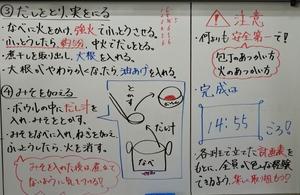 ③だしをとり、実をにる
・なべに火をかけ、強火でふっとうさせる。
・ふっとうしたら、約5分、中火でだしをとる。
・煮干しを取り出し、大根を入れる。
・大根がやわらかくなったら、油あげを入れる。
④みそを加える
・ボウルの中にだし汁を入れ、みそをとかす。
・みそをなべに入れ、ねぎを加え、
ふっとうしたら、火を消す。
みそを入れた後は煮立て
ないように気をつける!
とかす
だし汁
なべ
注意
・何よりも安全第一で!
包丁のあつかい方
火のあつかい方
・完成は
14:55
ころ!!
各班で立てた計画表を
もとに、全員が
できるよう、